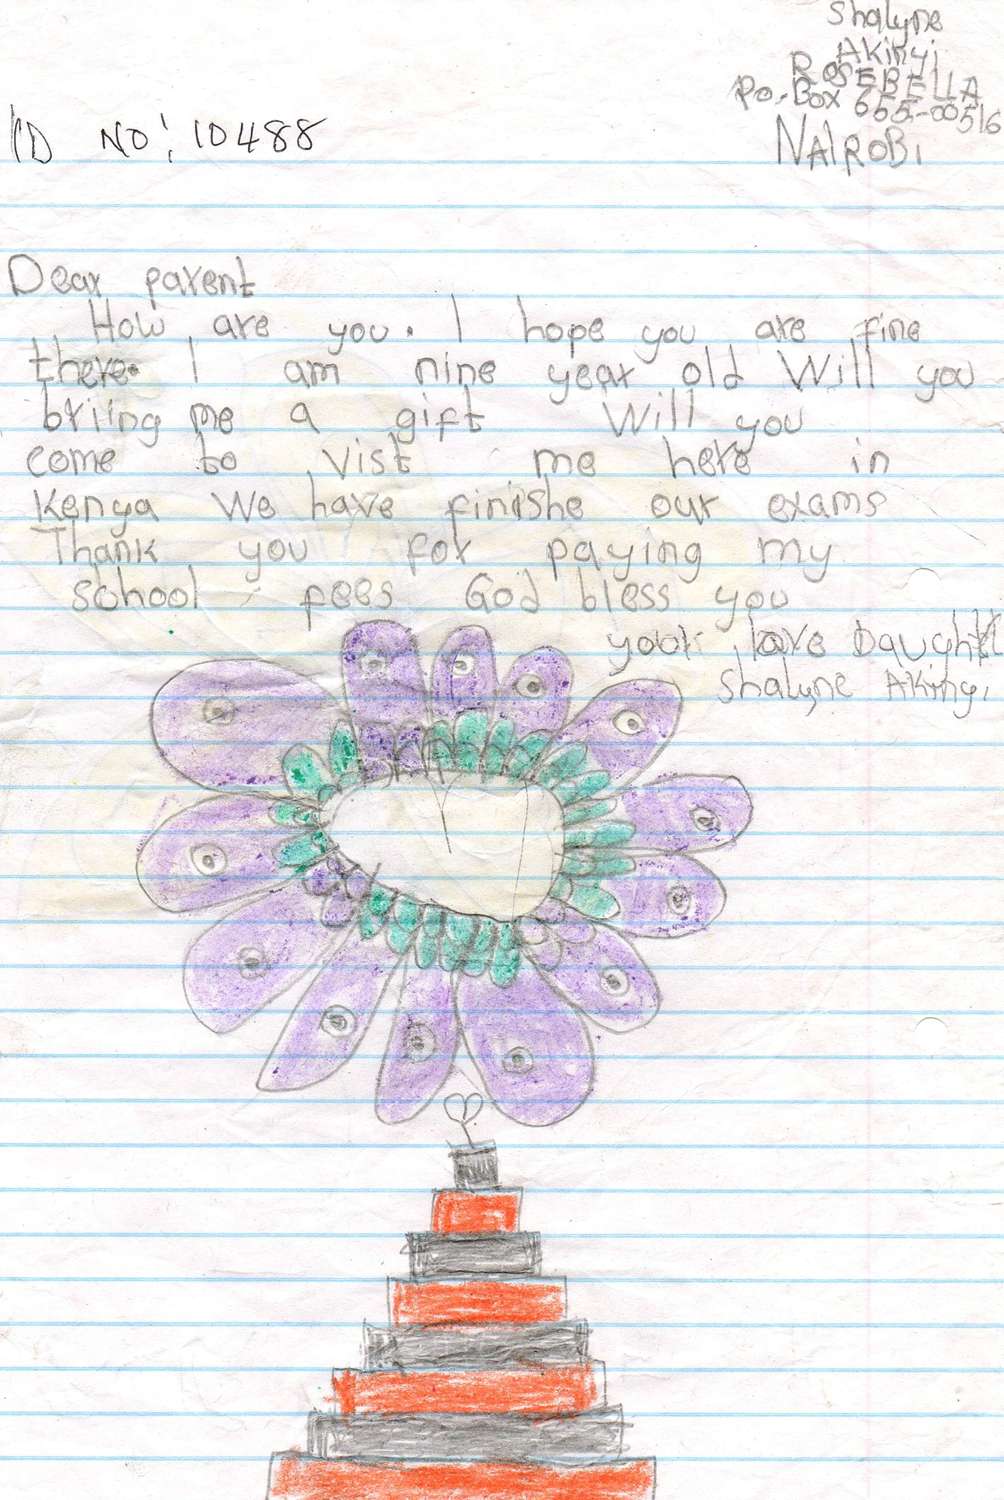 Shalyne
Akinyi
ROSEBELLA
Po.Box 655-00516
NAIROBI
ID NO: 10488
Dear parent
How are you. I hope you are fine
there. I am nine year old Will you
briing me a gift Will you
come to vist me here in
Kenya We have finishe our exams
Thank you for paying my
school fees God bless you
love Daught
Shalyne Akinyi